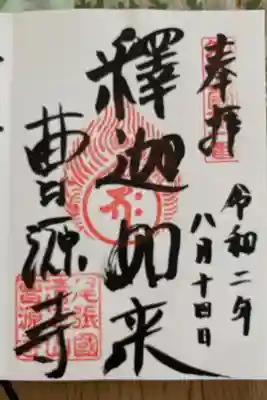 奉拝
令和二年
八月十四日
釋迦如来
曹源寺
尾張國